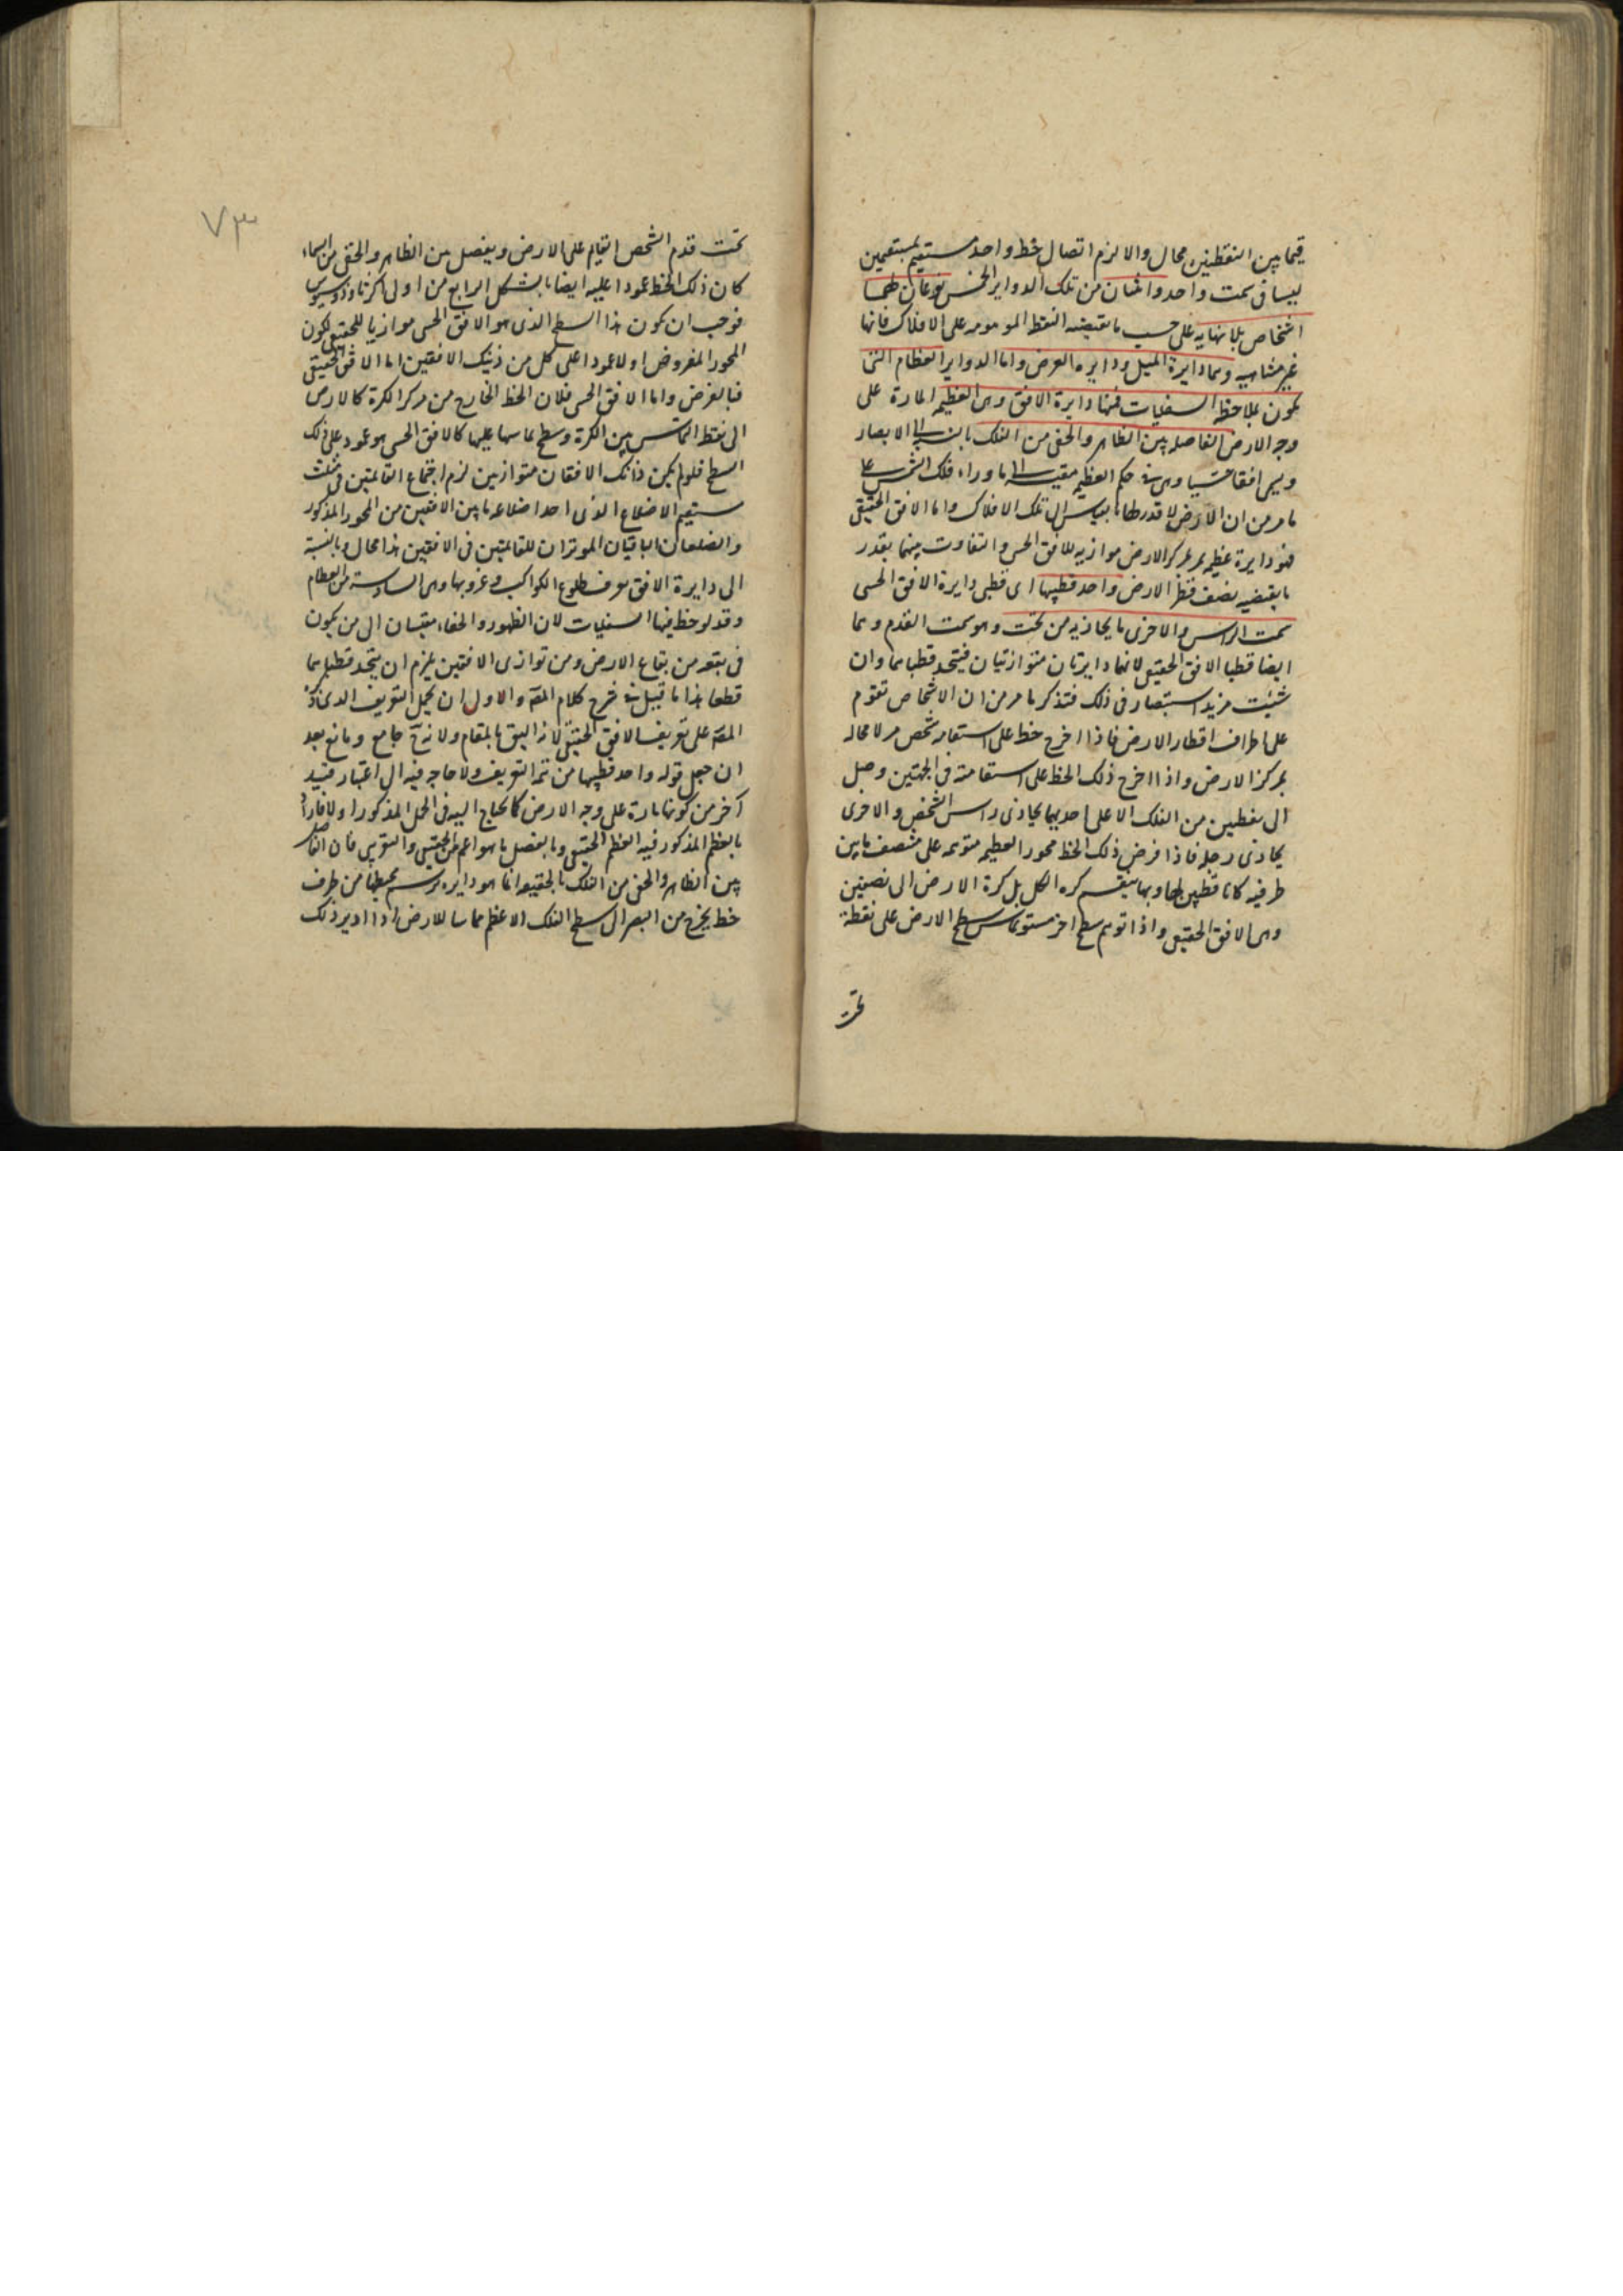 فيما بين النقطتين محال والا لزم اتصال خط واحد مستقيم بمستقيمين
ليسا فى سمت واحد واثنان من تلك الدواير الخمس نوعان لهما
اشخاص بلا نهايه على حسب ما تقتضيه النقط الموهومه على الافلاك فانها
غير متناهيه وهما دايرة الميل ودايره العرض واما الدواير العظام التى
تكون بملاحظه السفليات فمنها دايرة الافق وهى العظيمه المارة على
وجه الارض الفاصله بين الظاهر والخفى من الفلك بالنسبه الى الابصار
ويسمى افقا حسيا وهى فى حكم العظيمه مقيسه الى ما وراء فلك الشمس على
ما مر من ان الارض لا قدر لها بالقياس الى تلك الافلاك واما الافق الحقيقى
فهو دايرة عظيمه بمركز الارض موازيه للافق الحسى والتفاوت بينهما بقدر
ما يقتضيه نصف قطر الارض واحد قطبيها اى قطبى دايرة الافق الحسى
سمت الراس والاخرى ما يحاذيه من تحت وهو سمت القدم وهما
ايضا قطبا الافق الحقيقى لانهما دايرتان متوازتيان فيتحد قطباهما وان
شئت مزيد استبصار فى ذلك فتذكر ما مر من ان الاشخاص تقوم
على اطراف اقطار الارض فاذا اخرج خط على استقامه شخص مر لا محاله
بمركز الارض واذا اخرج ذلك الخط على استقامته فى الجهتين وصل
الى نقطتين من الفلك الاعلى احديهما يحاذى راس الشخص والاخرى
يحاذى رجله فاذا فرض ذلك الخط محور العظيمه متوهمه على منتصف ما بين
طرفيه كانا قطبين لها وبها ينقسم كره الكل بل كرة الارض الى نصفين
وهى الافق الحقيقى واذا توهم سطح اخر مستو يماس سطح الارض على نقطة
تحت
٧٣
تحت قدم الشخص القايم على الارض ويفصل بين الظاهر والخفى من السماء
كان ذلك الخط عمودا عليه ايضا بالشكل الرابع من اولى اكر ثاوذوسيوس
فوجب ان يكون هذا السطح الذى هو الافق الحسى موازيا للحقيقى لكون
المحور المفروض اولا عمودا على كل من ذينك الافقين اما الافق الحقيقى
فبالفرض واما الافق الحسى فلان الخط الخارج من مركز الكرة كالارض
الى نقطه التماس بين الكرة وسطح يماسها عليها كالافق الحسى هو عمود على ذلك
السطح فلو لم يكن ذانك الافقان متوازيين لزم اجتماع القائمتين فى مثلث
مستقيم الاضلاع الذى احد اضلاعه ما بين الافقين من المحور المذكور
والضلعان الباقيان الموتران للقائمتين فى الافقين هذا محال وبالنسبة
الى دايرة الافق يعرف طلوع الكواكب وغروبها وهى السادسة من العظام
وقد لوحظ فيها السفليات لان الظهور والخفاء يقتسان الى من يكون
فى بقعه من بقاع الارض ومن توازى الافقين يلزم ان يتحد قطباهما
قطعا هذا ما قيل فى شرح كلام المصنف والاولى ان يحمل التعريف الذى ذكره
المصنف على تعريف الافق الحقيقى لانه اليق بالمقام ولانه ح جامع ومانع بعد
ان جعل قوله واحد قطبيها من تتمه التعريف ولا حاجه فيه الى اعتبار قيد
آخر من كونها مارة على وجه الارض كما يحتاج اليه فى الحمل المذكور اولا
بالعظم المذكور فيه العظم الحقيقى وبالفصل ما هو اعم من الحقيقى والتقريبى فان الفاصل
بين الظاهر والخفى من الفلك بالحقيقه انما هو دايره يرسم محيطها من طرف
خط يخرج من البصر الى سطح الفلك الاعظم مماسا للارض اذا ادير ذلك